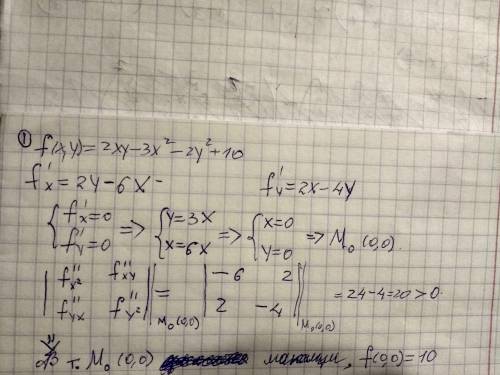 ① f(x,y)=2xy-3x²-2y²+10
f'x=2y-6x- f'y=2x-4y
{f'x=0 f'y=0 => {y=3x x=6x => {x=0 y=0 => M₀(0,0).
|f''x² f''xy f''yx f''y²| M₀(0,0) = |-6 2 2 -4| M₀(0,0) =24-4=20>0
т. M₀(0,0) , f(0,0)=10